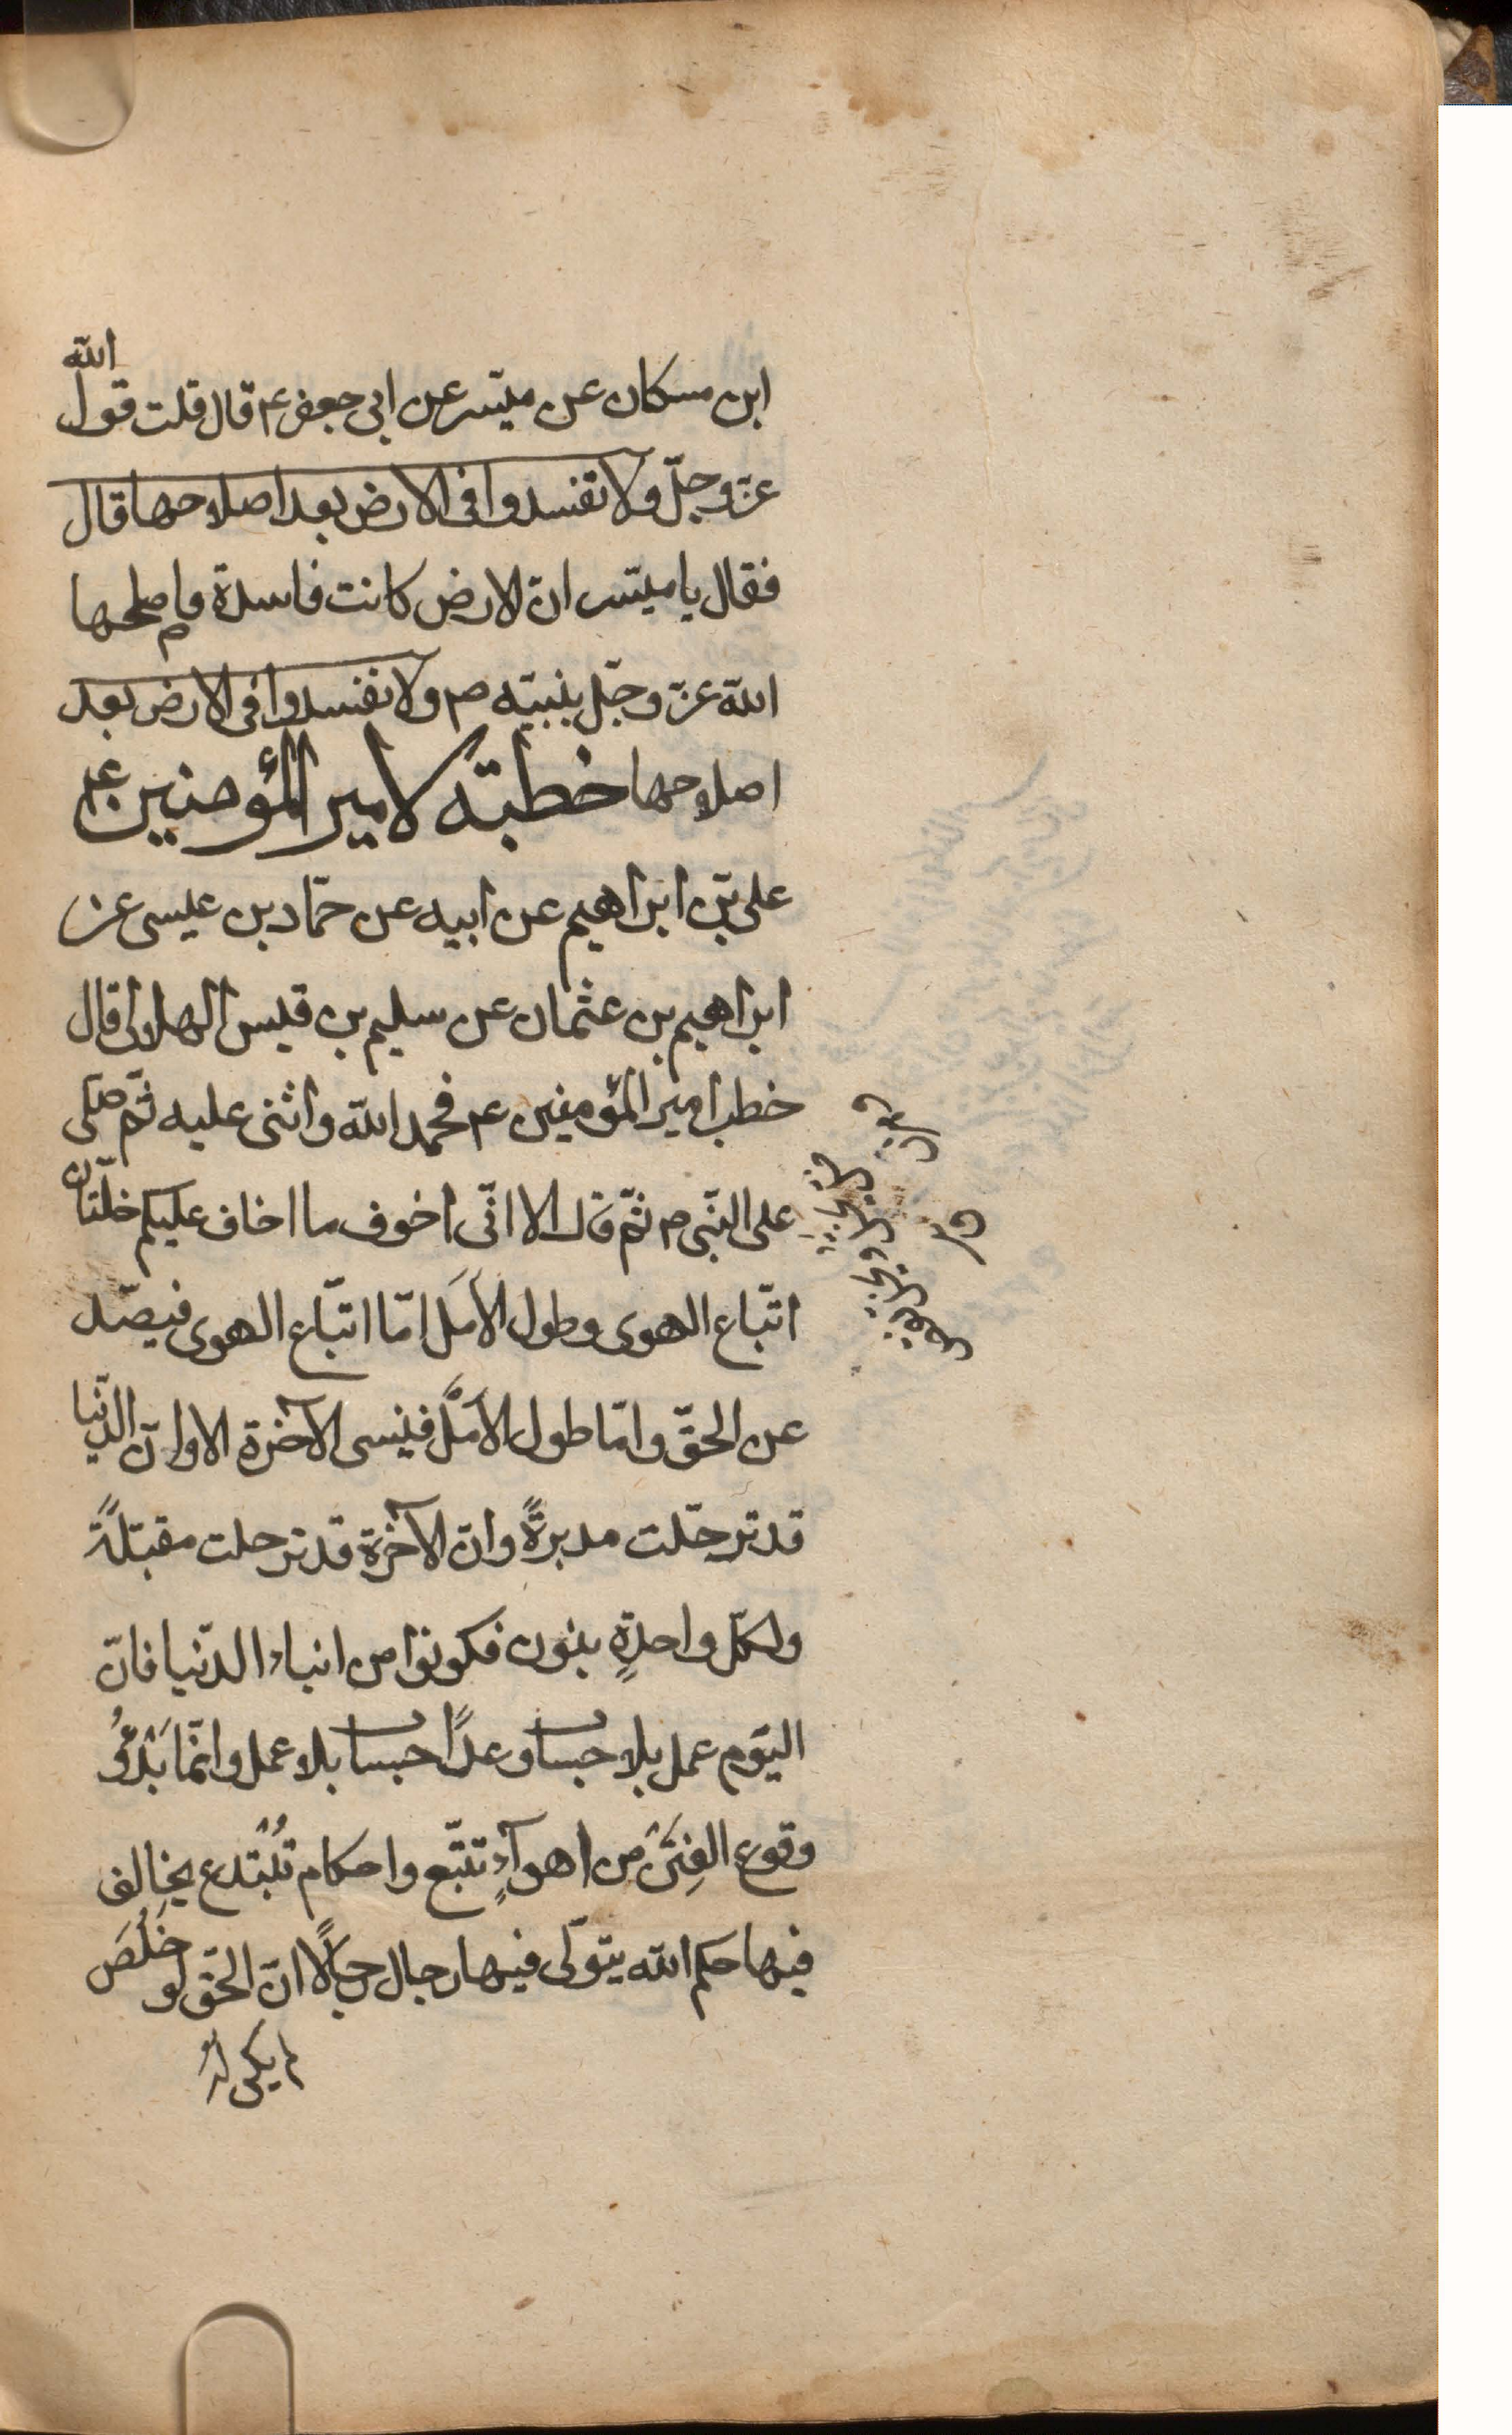 ابن مسكان عن ميسّر عن ابى جعفر ع قال قلت قول الله
عزّ وجلّ ولا تفسدوا فى الارض بعد اصلاحها قال
فقال يا ميسّر انّ الارض كانت فاسدة فاصلحها
الله عزّ وجلّ بنبيّه ص ولا تفسدوا فى الارض بعد
اصلاحها خطبته لامير المؤمنين ع
على بن ابراهيم عن ابيه عن حمّاد بن عيسى عن
ابراهيم بن عثمان عن سليم بن قيس الهلالى قال
خطب امير المؤمنين ع فحمد الله واثنى عليه ثمّ صلّى
على النّبى ص ثمّ قال الا انّى اخوف ما اخاف عليكم خلّتان
اتّباع الهوى وطول الاَمَل امّا اتّباع الهوى فيصّد
عن الحقّ وامّا طول الاَمَل فينسى الآخرة الا وانّ الدّنيا
قد ترحّلت مدبرةً وانّ الآخرة قد ترحلت مقبلةً
ولكلّ واحدةٍ بنون فكونوا من ابناء الدّنيا فانّ
اليوم عمل بلا حساب وغداً حساب بلا عمل وانّما بَدْؤُ
وقوع الفِتَن من اهوآءٍ تتّبع واحكام تُبْتدع يخالف
فيها حكم الله يتولّى فيها رجال رجالاً انّ الحقّ لو خَلُصَ
لم يكن لذ